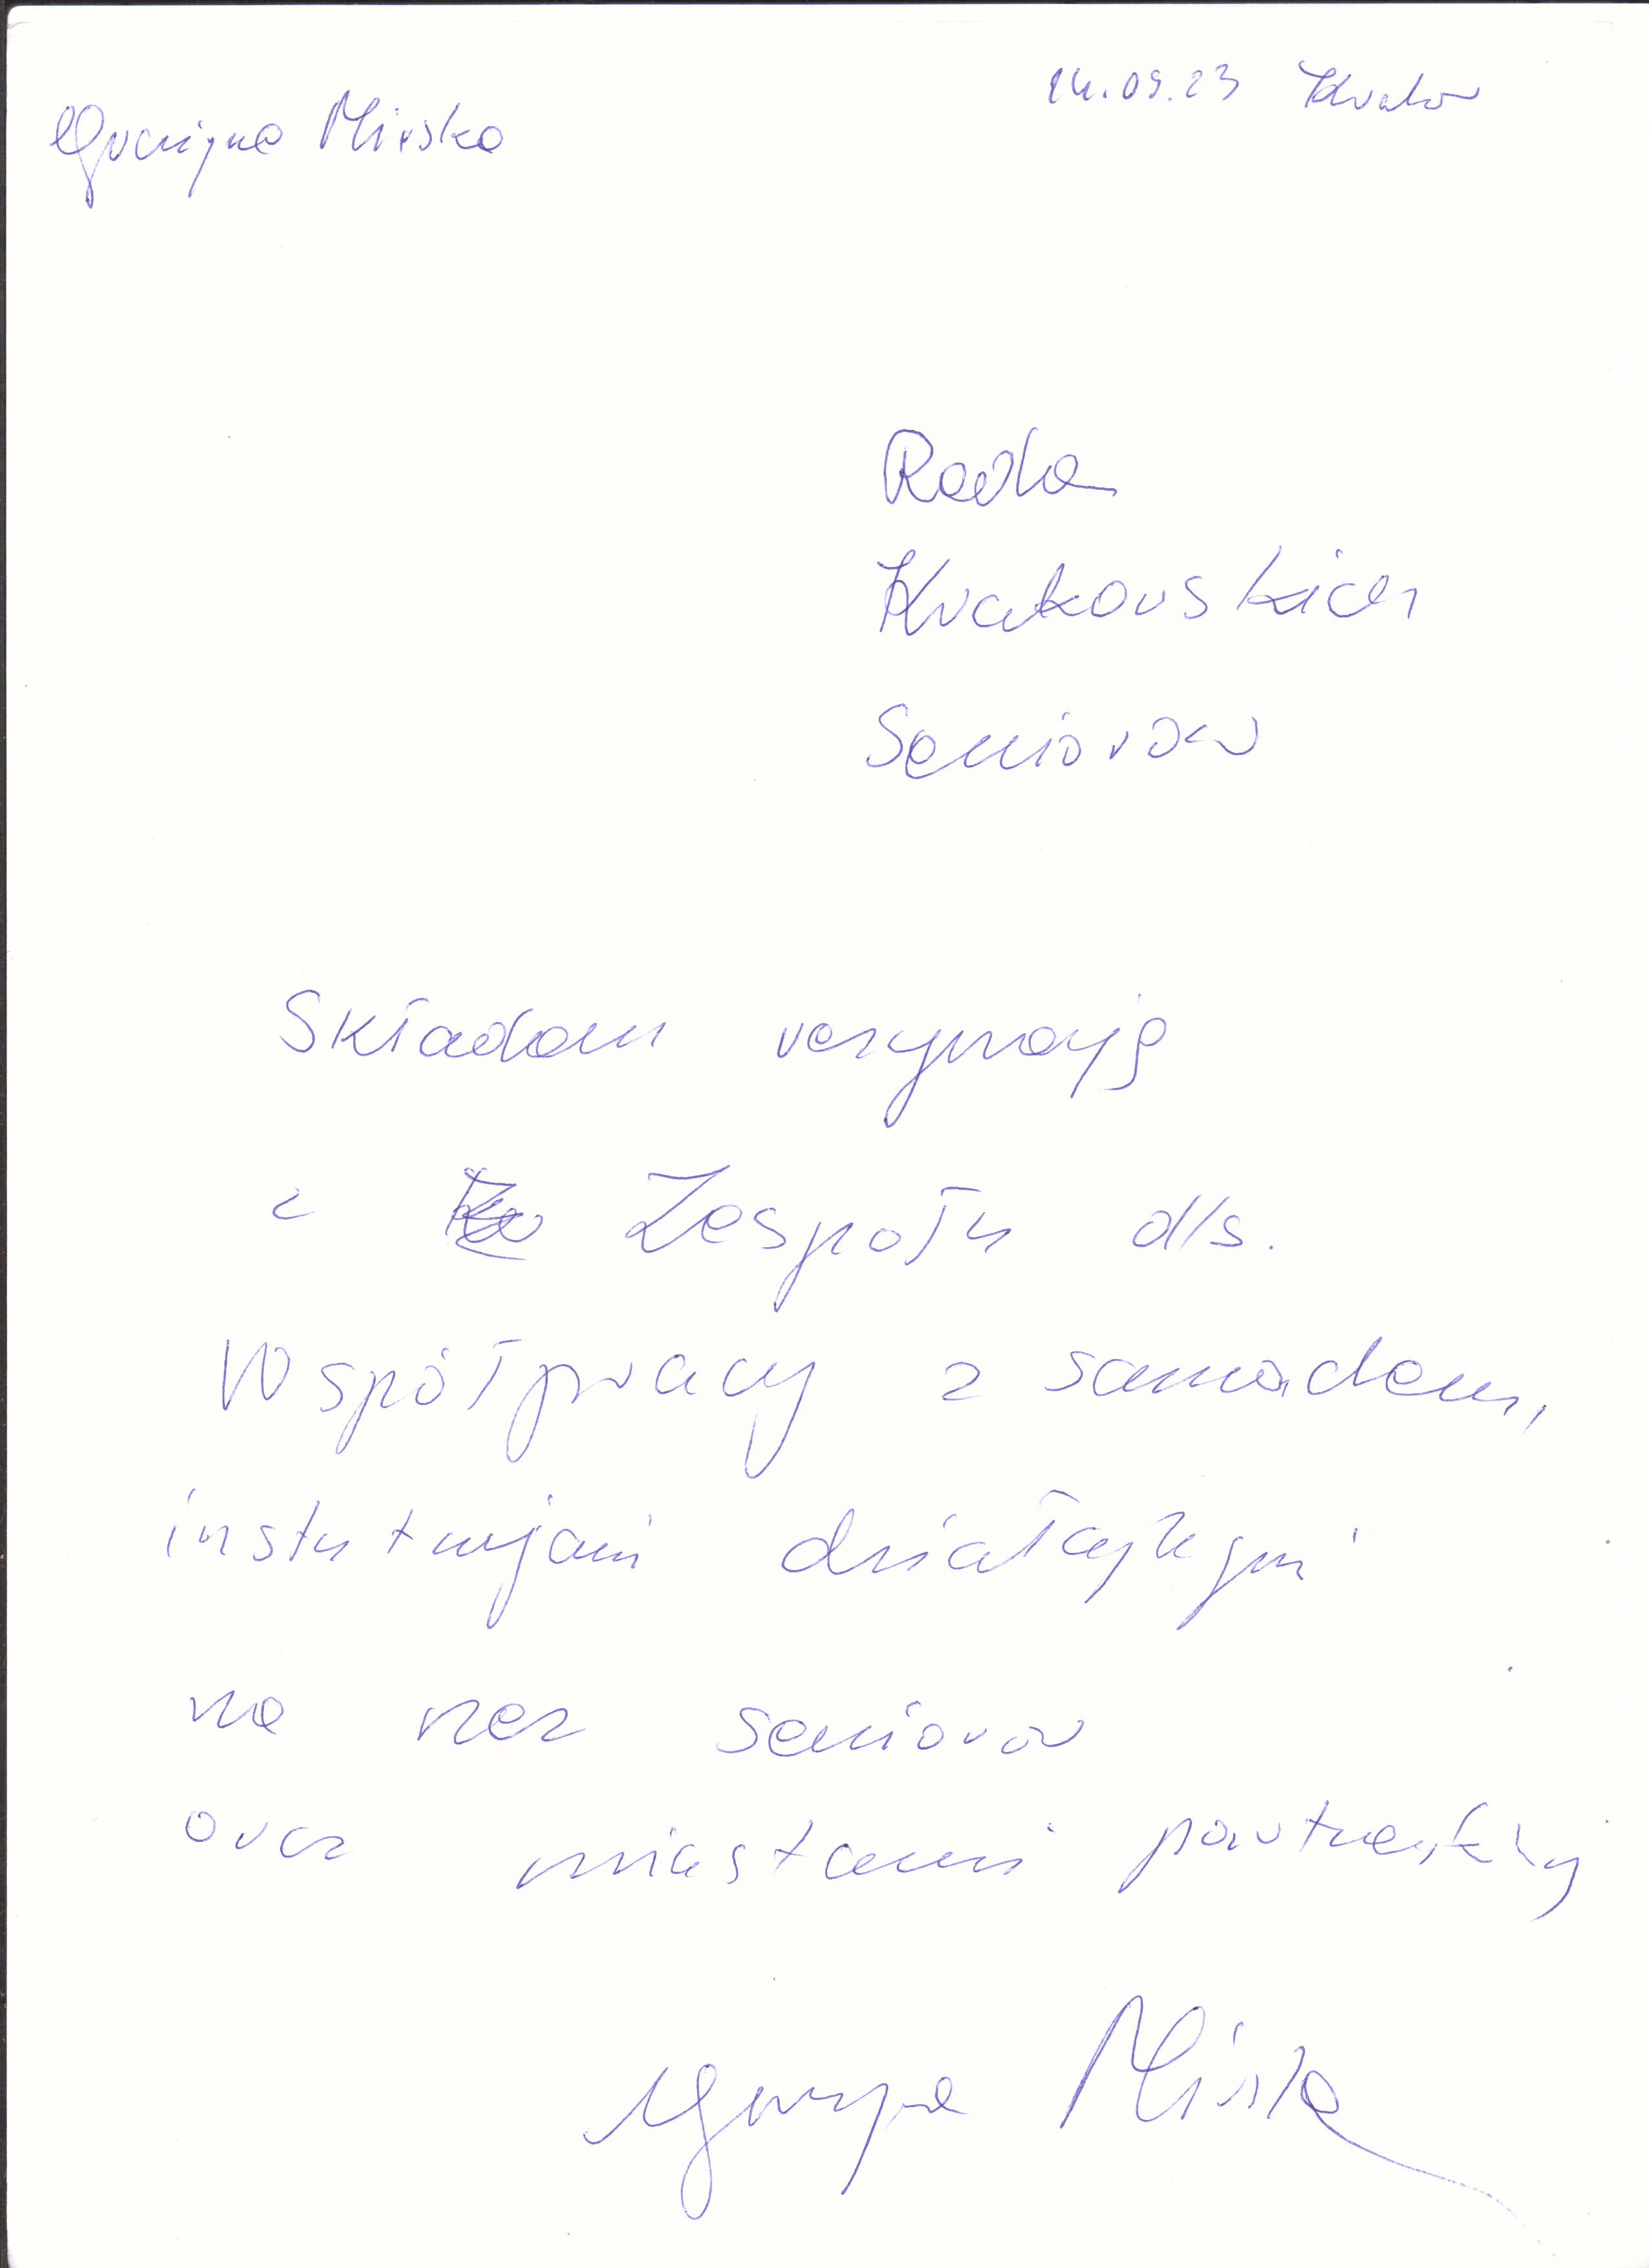 Grażyna Mirska
14.09.23 Kraków
Rada
Krakowskich
Seniorów
Składam rezygnację
z Zespołu d/s.
Współpracy z samorządem,
instytucjami działającymi
na rzecz seniorów
oraz miastami partnerskimi
Grażyna Mirska